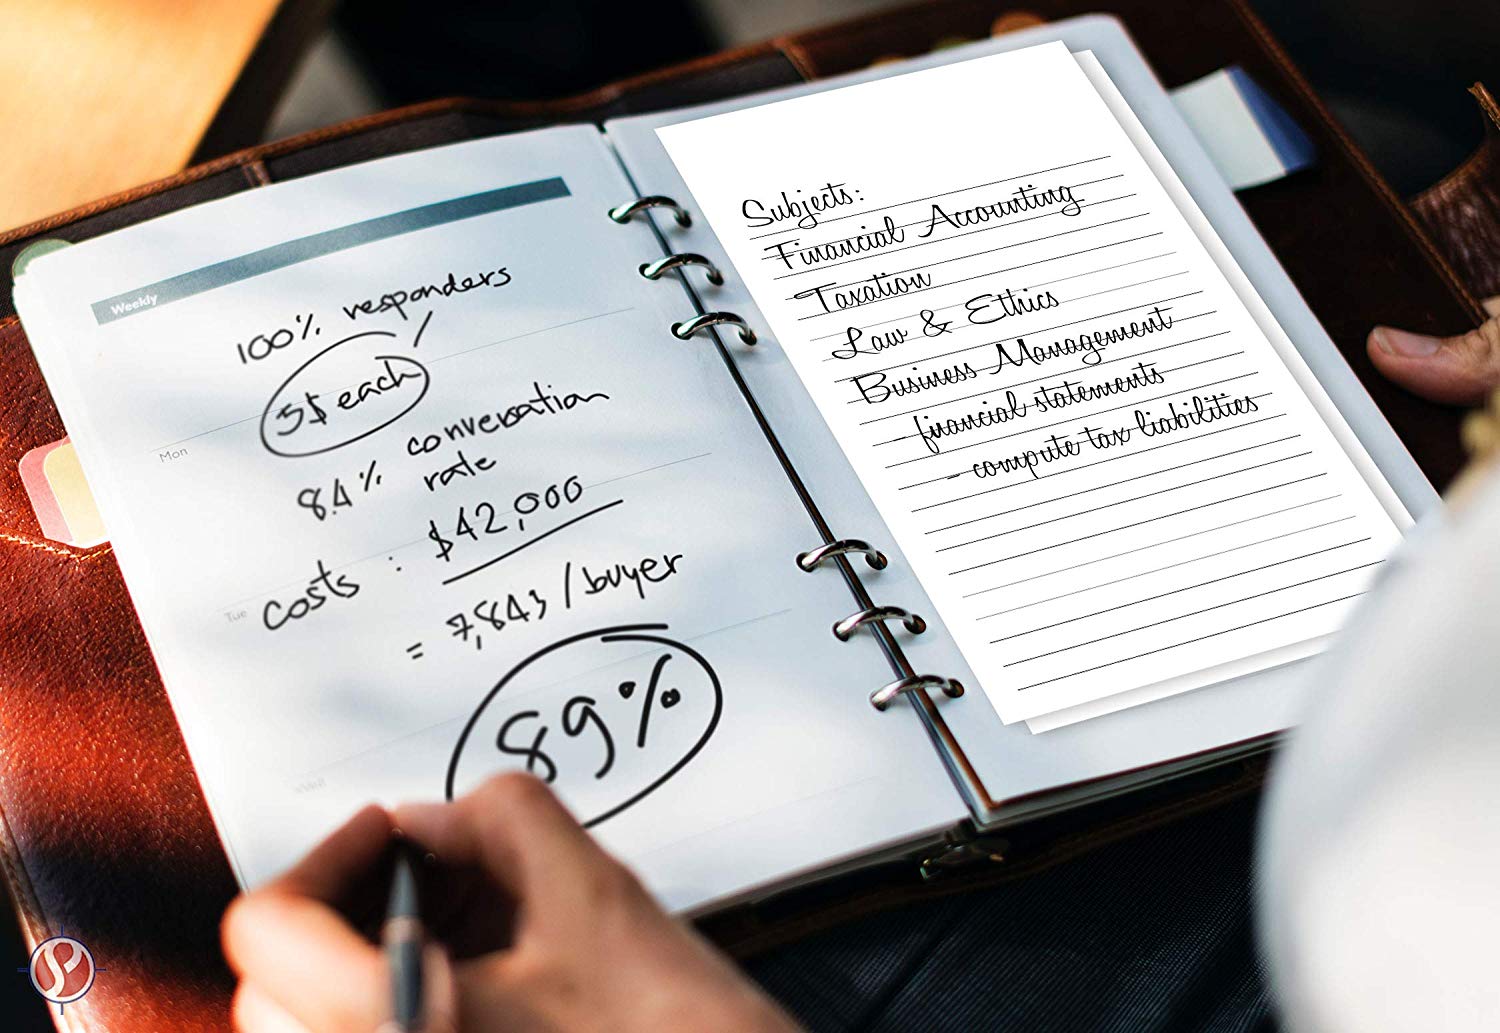 Weekly
100% responders
5$ each
8.4% conversation
rate
Mon
costs : $42,000
Tue
= 7,843 / buyer
89%
Wed
Subjects:
Financial Accounting
Taxation
Law & Ethics
Business Management
- financial statements
- compute tax liabilities